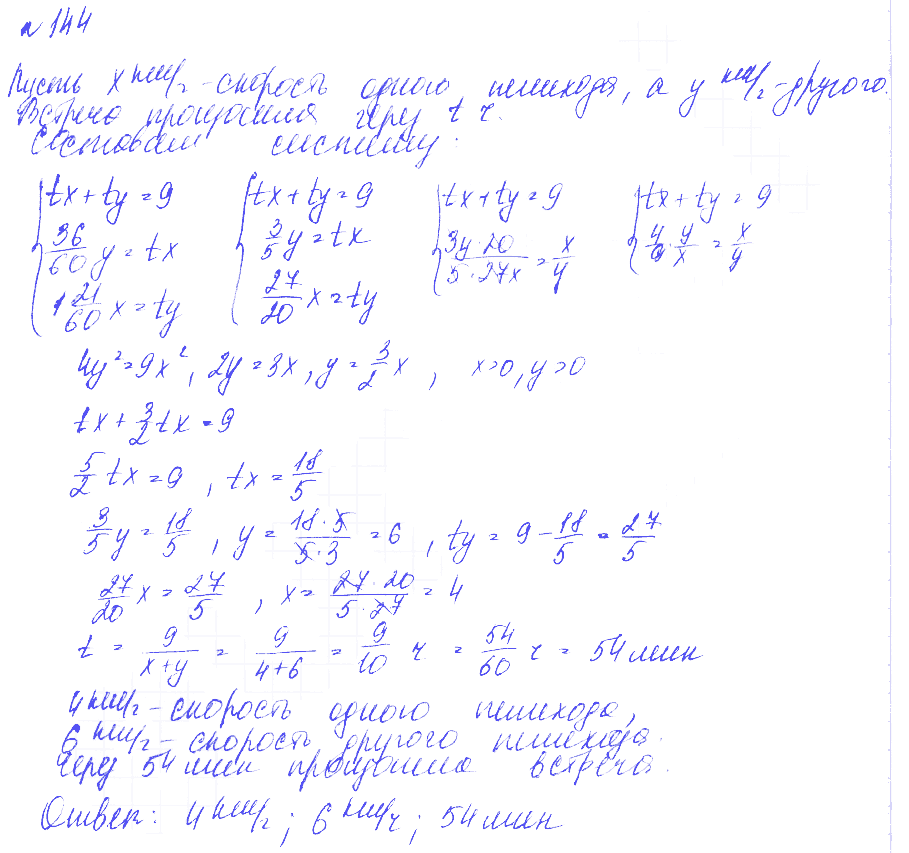 № 144
Пусть x км/ч - скорость одного пешехода, а y км/ч - другого.
Встреча произошла через t ч.
Составим систему:
{ tx + ty = 9 { tx + ty = 9 { tx + ty = 9 { tx + ty = 9
36/60 y = tx 3/5 y = tx 3y·20/5·27x = x/y 4/9 · y/x = x/y
1 21/60 x = ty 27/20 x = ty
4y² = 9x², 2y = 3x, y = 3/2 x, x>0, y>0
tx + 3/2 tx = 9
5/2 tx = 9, tx = 18/5
3/5 y = 18/5, y = 18·5/5·3 = 6, ty = 9 - 18/5 = 27/5
27/20 x = 27/5, x = 27·20/5·27 = 4
t = 9/x+y = 9/4+6 = 9/10 ч = 54/60 ч = 54 мин
4 км/ч - скорость одного пешехода,
6 км/ч - скорость другого пешехода.
Через 54 мин произошла встреча.
Ответ: 4 км/ч; 6 км/ч; 54 мин